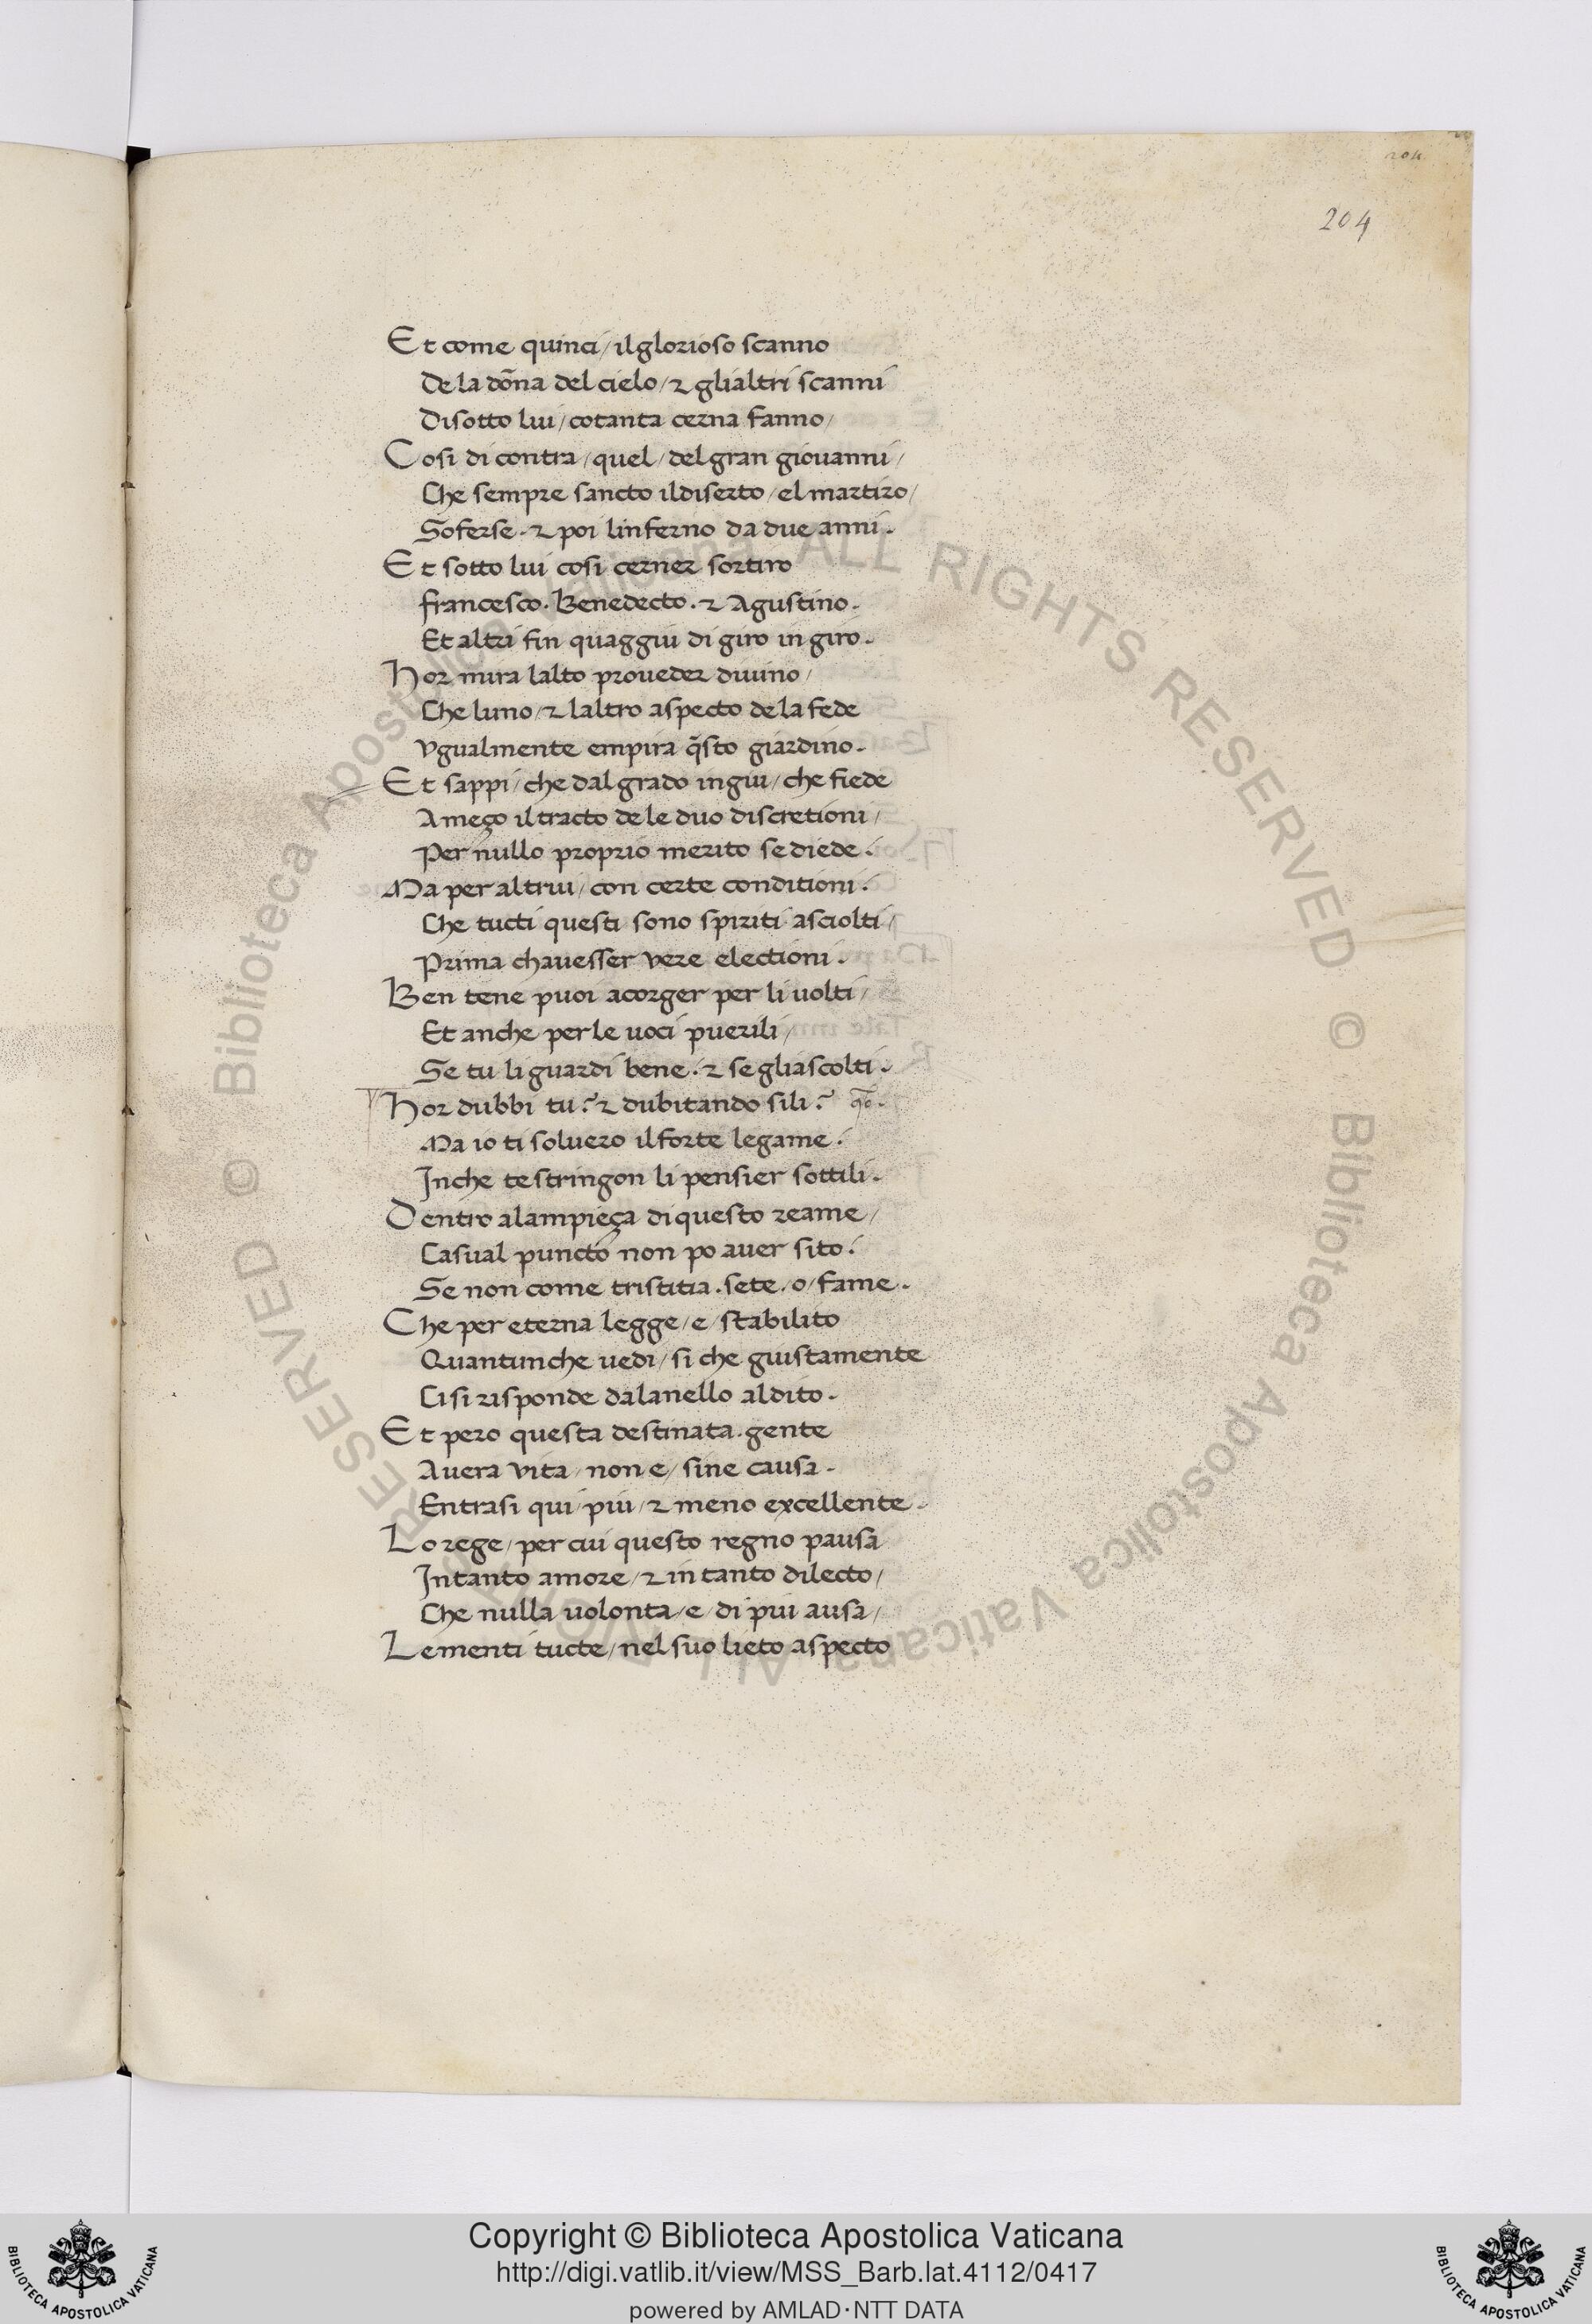 204
204
Et come quinci/ il glorioso scanno
De la dõna del cielo/ ⁊ glialtri scanni
Disotto lui/ cotanta cerna fanno/
Cosi di contra/ quel/ del gran giouanni/
Che sempre sancto il diserto/ el martiro/
Soferse. ⁊ poi linferno da due anni.
Et sotto lui cosi cerner sortiro
francesco. Benedecto. ⁊ Agustino.
Et altri fin quaggiu di giro in giro.
Hor mira lalto proueder diuino/
Che luno/ ⁊ laltro aspecto de la fede
Vgualmente empira q̃sto giardino.
Et sappi/ che dal grado in giu/ che fiede
A meço il tracto de le duo discretioni/
Per nullo proprio merito se diede.
Ma per altrui/ con certe conditioni.
Che tucti questi sono spiriti asciolti/
Prima chauesser vere electioni.
Ben tene puoi acorger per li uolti/
Et anche per le uoci puerili/
Se tu li guardi bene. ⁊ se gliascolti.
Hor dubbi tu? ⁊ dubitando sili?
Ma io ti soluero il forte legame.
In che te stringon li pensier sottili.
Dentro alampieça di questo reame/
Casual puncto non po auer sito.
Se non come tristitia. sete. o/ fame.
Che per eterna legge/ e/ stabilito
Quantunche uedi/ si che giustamente
Ci si risponde dalanello aldito.
Et pero questa destinata. gente
A uera vita/ non e/ sine causa.
Entrasi qui/ piu/ ⁊ meno excellente.
Lo rege/ per cui questo regno pausa
In tanto amore/ ⁊ in tanto dilecto/
Che nulla uolonta/ e/ di piu ausa/
Le menti tucte/ nel suo lieto aspecto
© Biblioteca Apostolica Vaticana ALL RIGHTS RESERVED © Biblioteca Apostolica Vaticana ALL RIGHTS RESERVED
Copyright © Biblioteca Apostolica Vaticana
http://digi.vatlib.it/view/MSS_Barb.lat.4112/0417
powered by AMLAD·NTT DATA
BIBLIOTECA APOSTOLICA VATICANA
BIBLIOTECA APOSTOLICA VATICANA